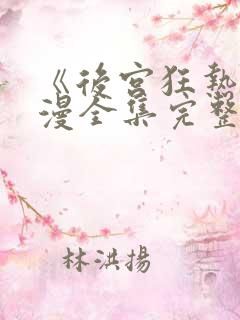 《後宮狂熱
漫全集完整
林洪揚